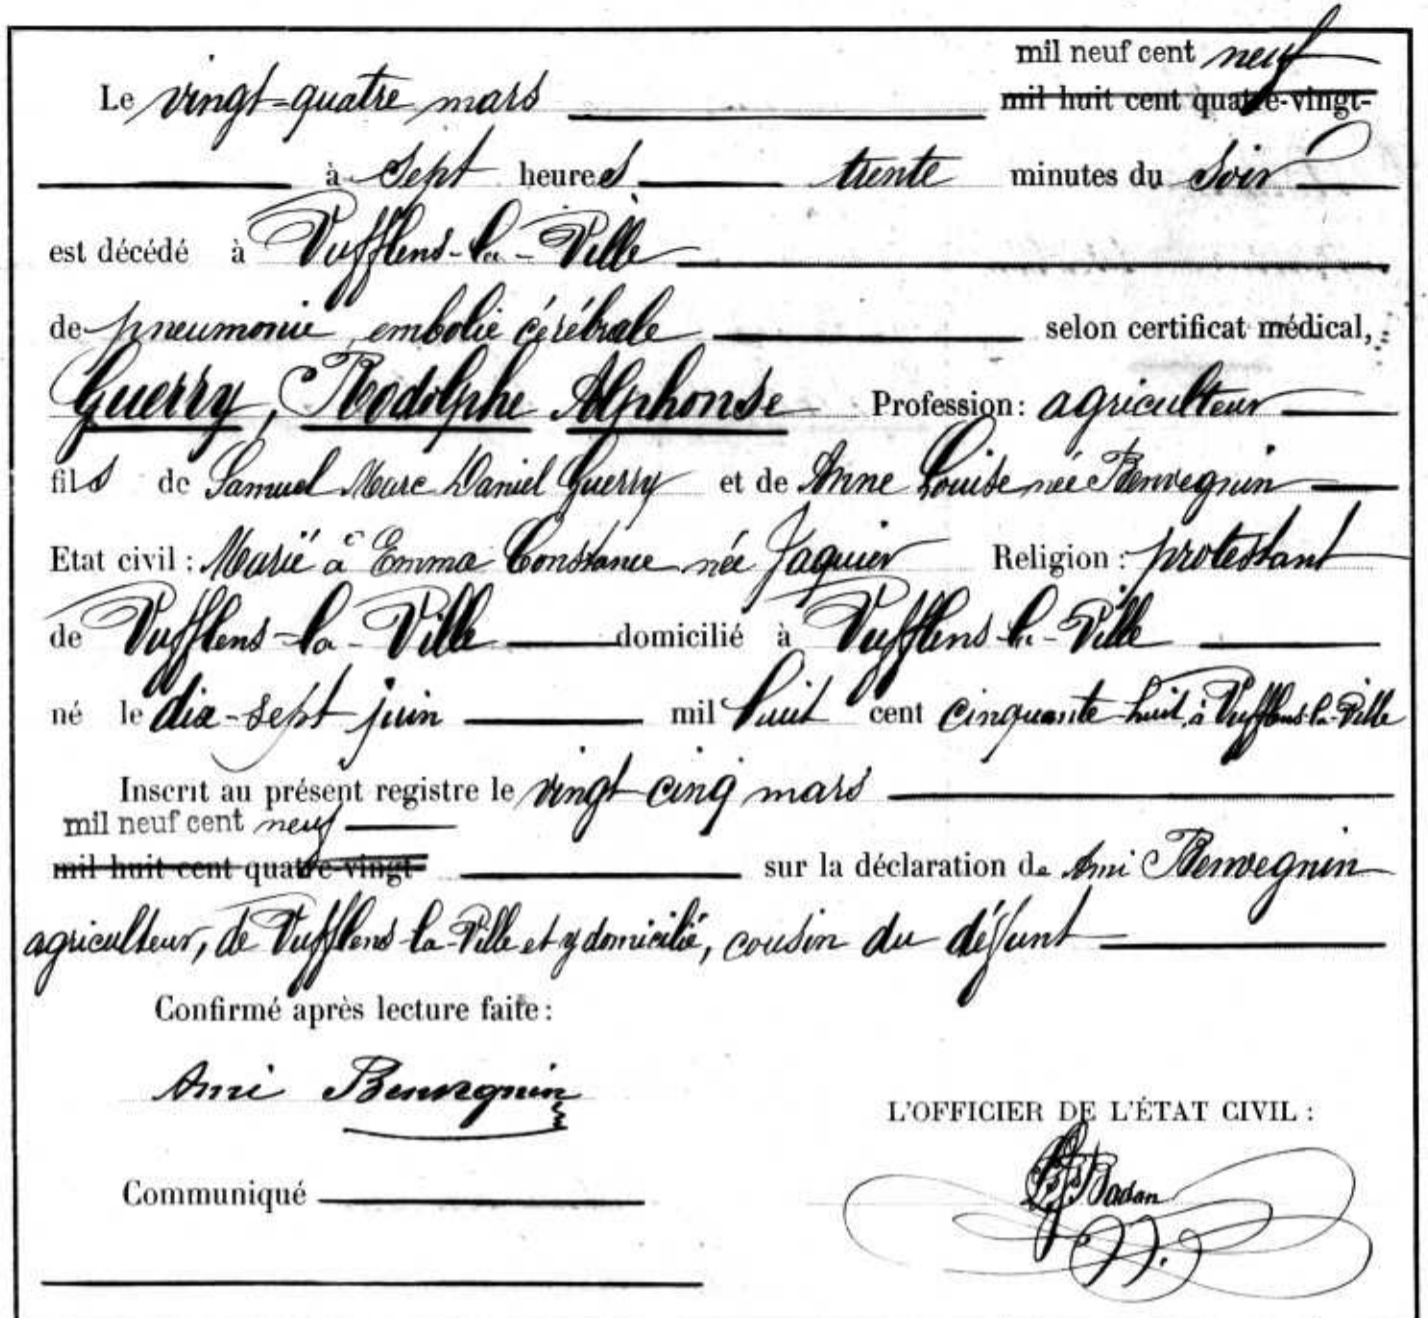 mil neuf cent neuf
Le vingt-quatre mars mil huit cent quatre-vingt-
à sept heures trente minutes du soir
est décédé à Vufflens-la-Ville
de pneumonie, embolie cérébrale selon certificat médical,
Guerry, Rodolphe Alphonse Profession: agriculteur
fils de Samuel Marc Daniel Guerry et de Anne Louise née Benvegnin
Etat civil : Marié à Emma Constance née Jaquier Religion : protestant
de Vufflens-la-Ville domicilié à Vufflens-la-Ville
né le dix-sept juin mil huit cent cinquante-huit, à Vufflens-la-Ville
Inscrit au présent registre le vingt-cinq mars
mil neuf cent neuf
mil huit cent quatre-vingt- sur la déclaration de Ami Benvegnin
agriculteur, de Vufflens-la-Ville et y domicilié, cousin du défunt
Confirmé après lecture faite :
Ami Benvegnin
L'OFFICIER DE L'ÉTAT CIVIL :
Badan
Communiqué